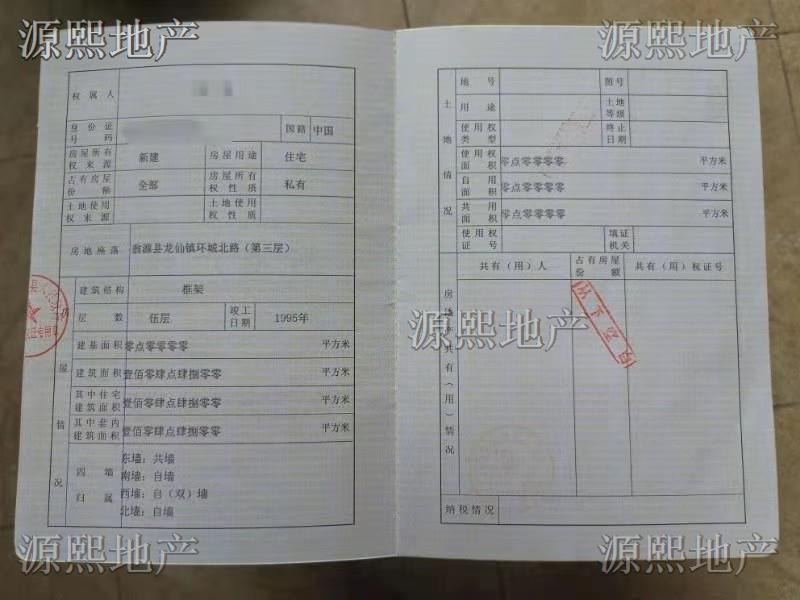 源熙地产
源熙地产
权属人
身份证
号码
国籍
中国
房屋所有
权来源
新建
房屋用途
住宅
占有房屋
份额
全部
房屋所有
权性质
私有
土地使用
权来源
土地使用
权性质
房地座落
翁源县龙仙镇环城北路（第三层）
房屋情况
建筑结构
框架
层数
伍层
竣工
日期
1995年
建基面积
零点零零零零
平方米
建筑面积
壹佰零肆点肆捌零零
平方米
其中住宅
建筑面积
壹佰零肆点肆捌零零
平方米
其中套内
建筑面积
壹佰零肆点肆捌零零
平方米
四墙
归属
东墙：共墙
南墙：自墙
西墙：自（双）墙
北墙：自墙
土地情况
地号
图号
用途
土地
等级
使用权
类型
终止
日期
使用权
面积
零点零零零零
平方米
自用
面积
零点零零零零
平方米
共用
面积
零点零零零零
平方米
使用权
证号
填证
机关
共有（用）人
占有房屋
份额
共有（用）权证号
共有（用）情况
以下空白
纳税情况
源熙地产
源熙地产
源熙地产